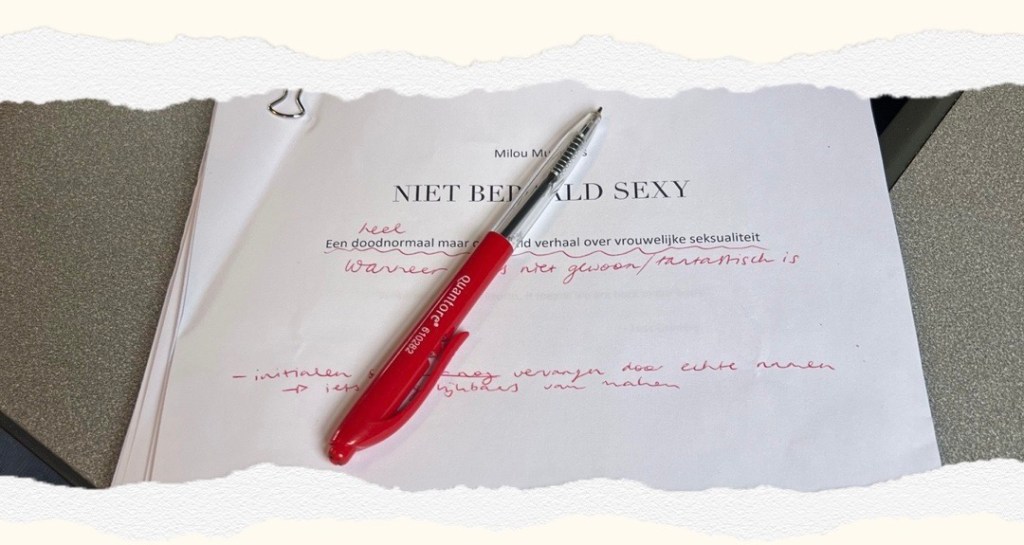 Milou
NIET BEPAALD SEXY
heel
Een doodnormaal maar verhaal over vrouwelijke seksualiteit
Wanneer niet gewoon/fantastisch is
quantore® 610282
- initialen vervangen door echte namen
→ iets van maken